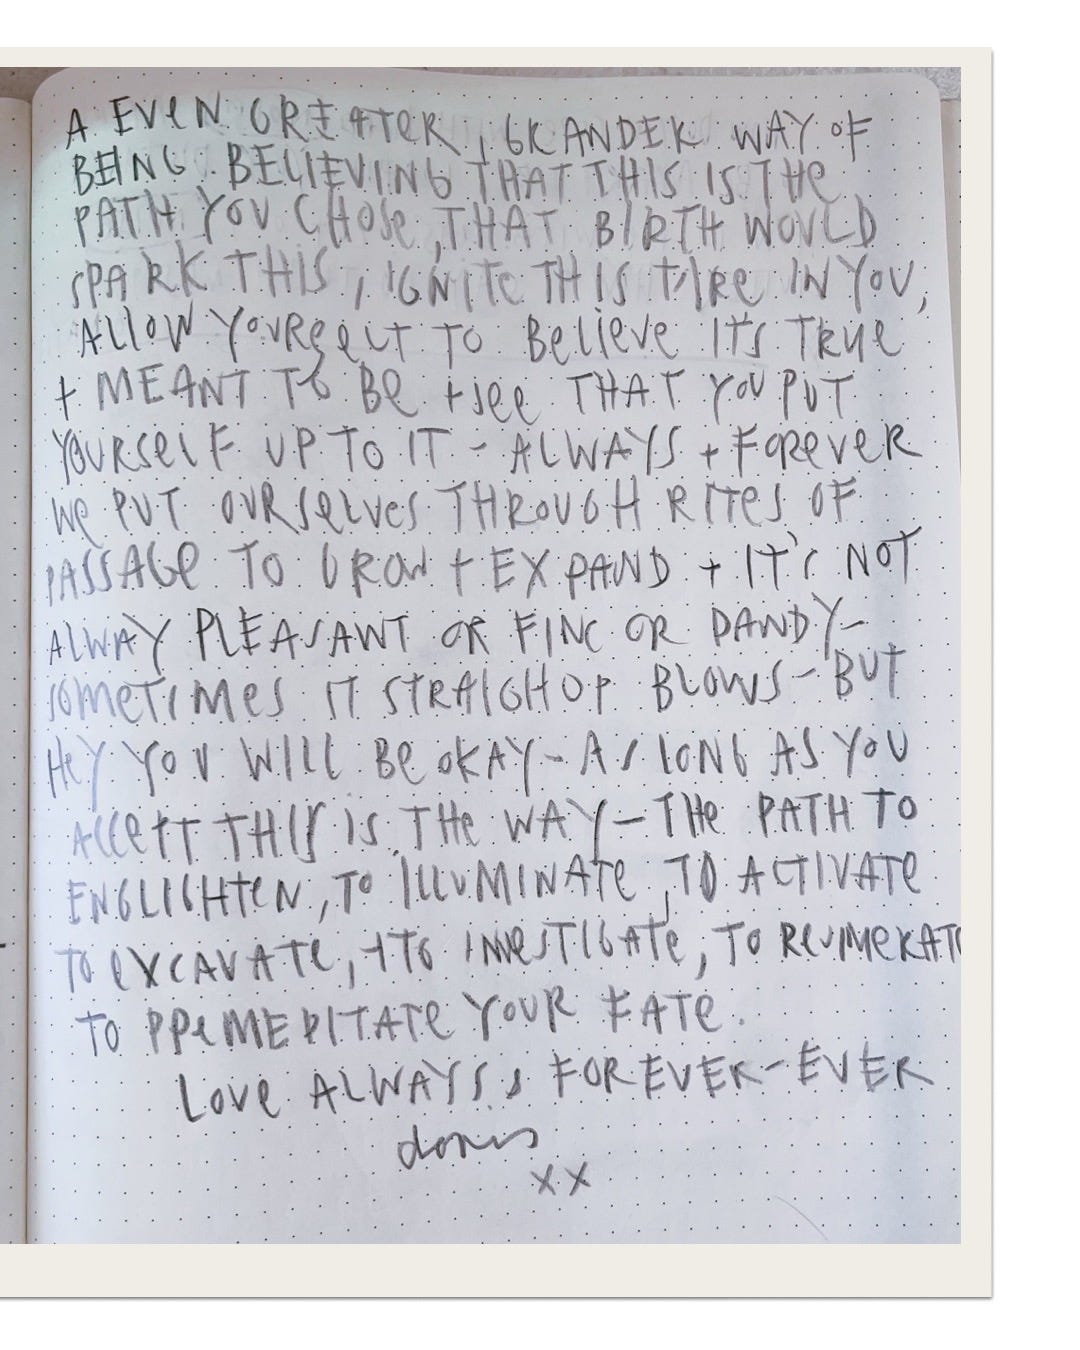 A EVEN GREATER, GRANDER WAY OF
BEING. BELIEVING THAT THIS IS THE
PATH YOU CHOSE, THAT BIRTH WOULD
SPARK THIS, IGNITE THIS FIRE IN YOU,
ALLOW YOURSELF TO BELIEVE IT'S TRUE
+ MEANT TO BE + SEE THAT YOU PUT
YOURSELF UP TO IT - ALWAYS + FOREVER
WE PUT OURSELVES THROUGH RITES OF
PASSAGE TO GROW + EXPAND + IT'S NOT
ALWAY PLEASANT OR FINE OR DANDY-
SOMETIMES IT STRAIGHUP BLOWS - BUT
HEY YOU WILL BE OKAY - AS LONG AS YOU
ACCEPT THIS IS THE WAY - THE PATH TO
ENGLIGHTEN, TO ILLUMINATE, TO ACTIVATE
TO EXCAVATE, + TO INVESTIGATE, TO
TO PREMEDITATE YOUR FATE.
LOVE ALWAYS, FOREVER-EVER
doris
xx